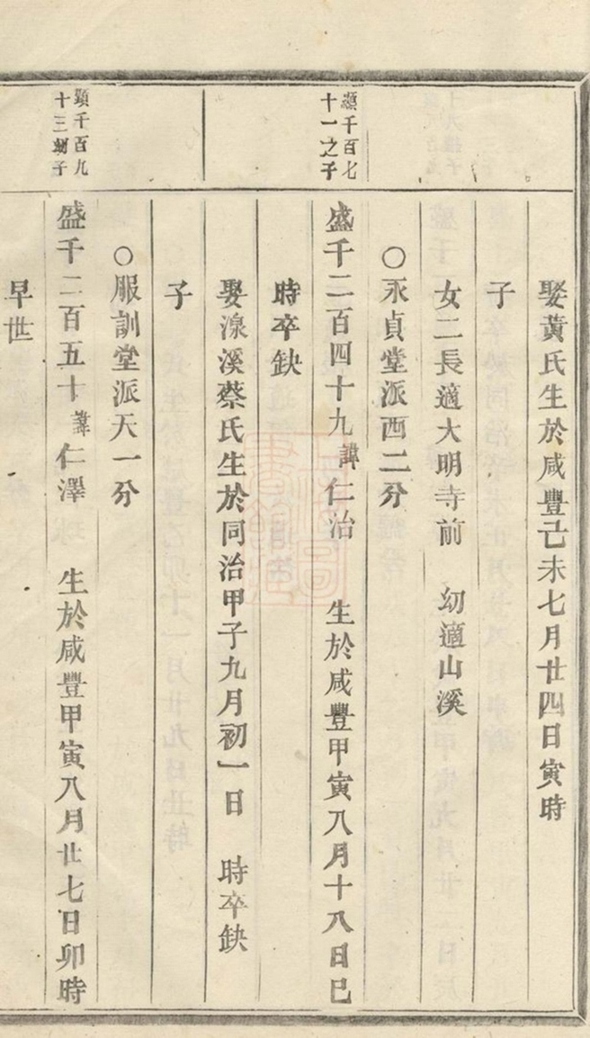 娶黃氏生於咸豐己未七月廿四日寅時
子
女二長適大明寺前　幼適山溪
○永貞堂派酉二分
顯千百七
十一之子
盛千二百四十九諱仁治　生於咸豐甲寅八月十八日巳
時卒缺
娶湶溪蔡氏生於同治甲子九月初一日　時卒缺
子
○服訓堂派天一分
顯千百九
十三嗣子
盛千二百五十諱仁澤　生於咸豐甲寅八月廿七日卯時
早世